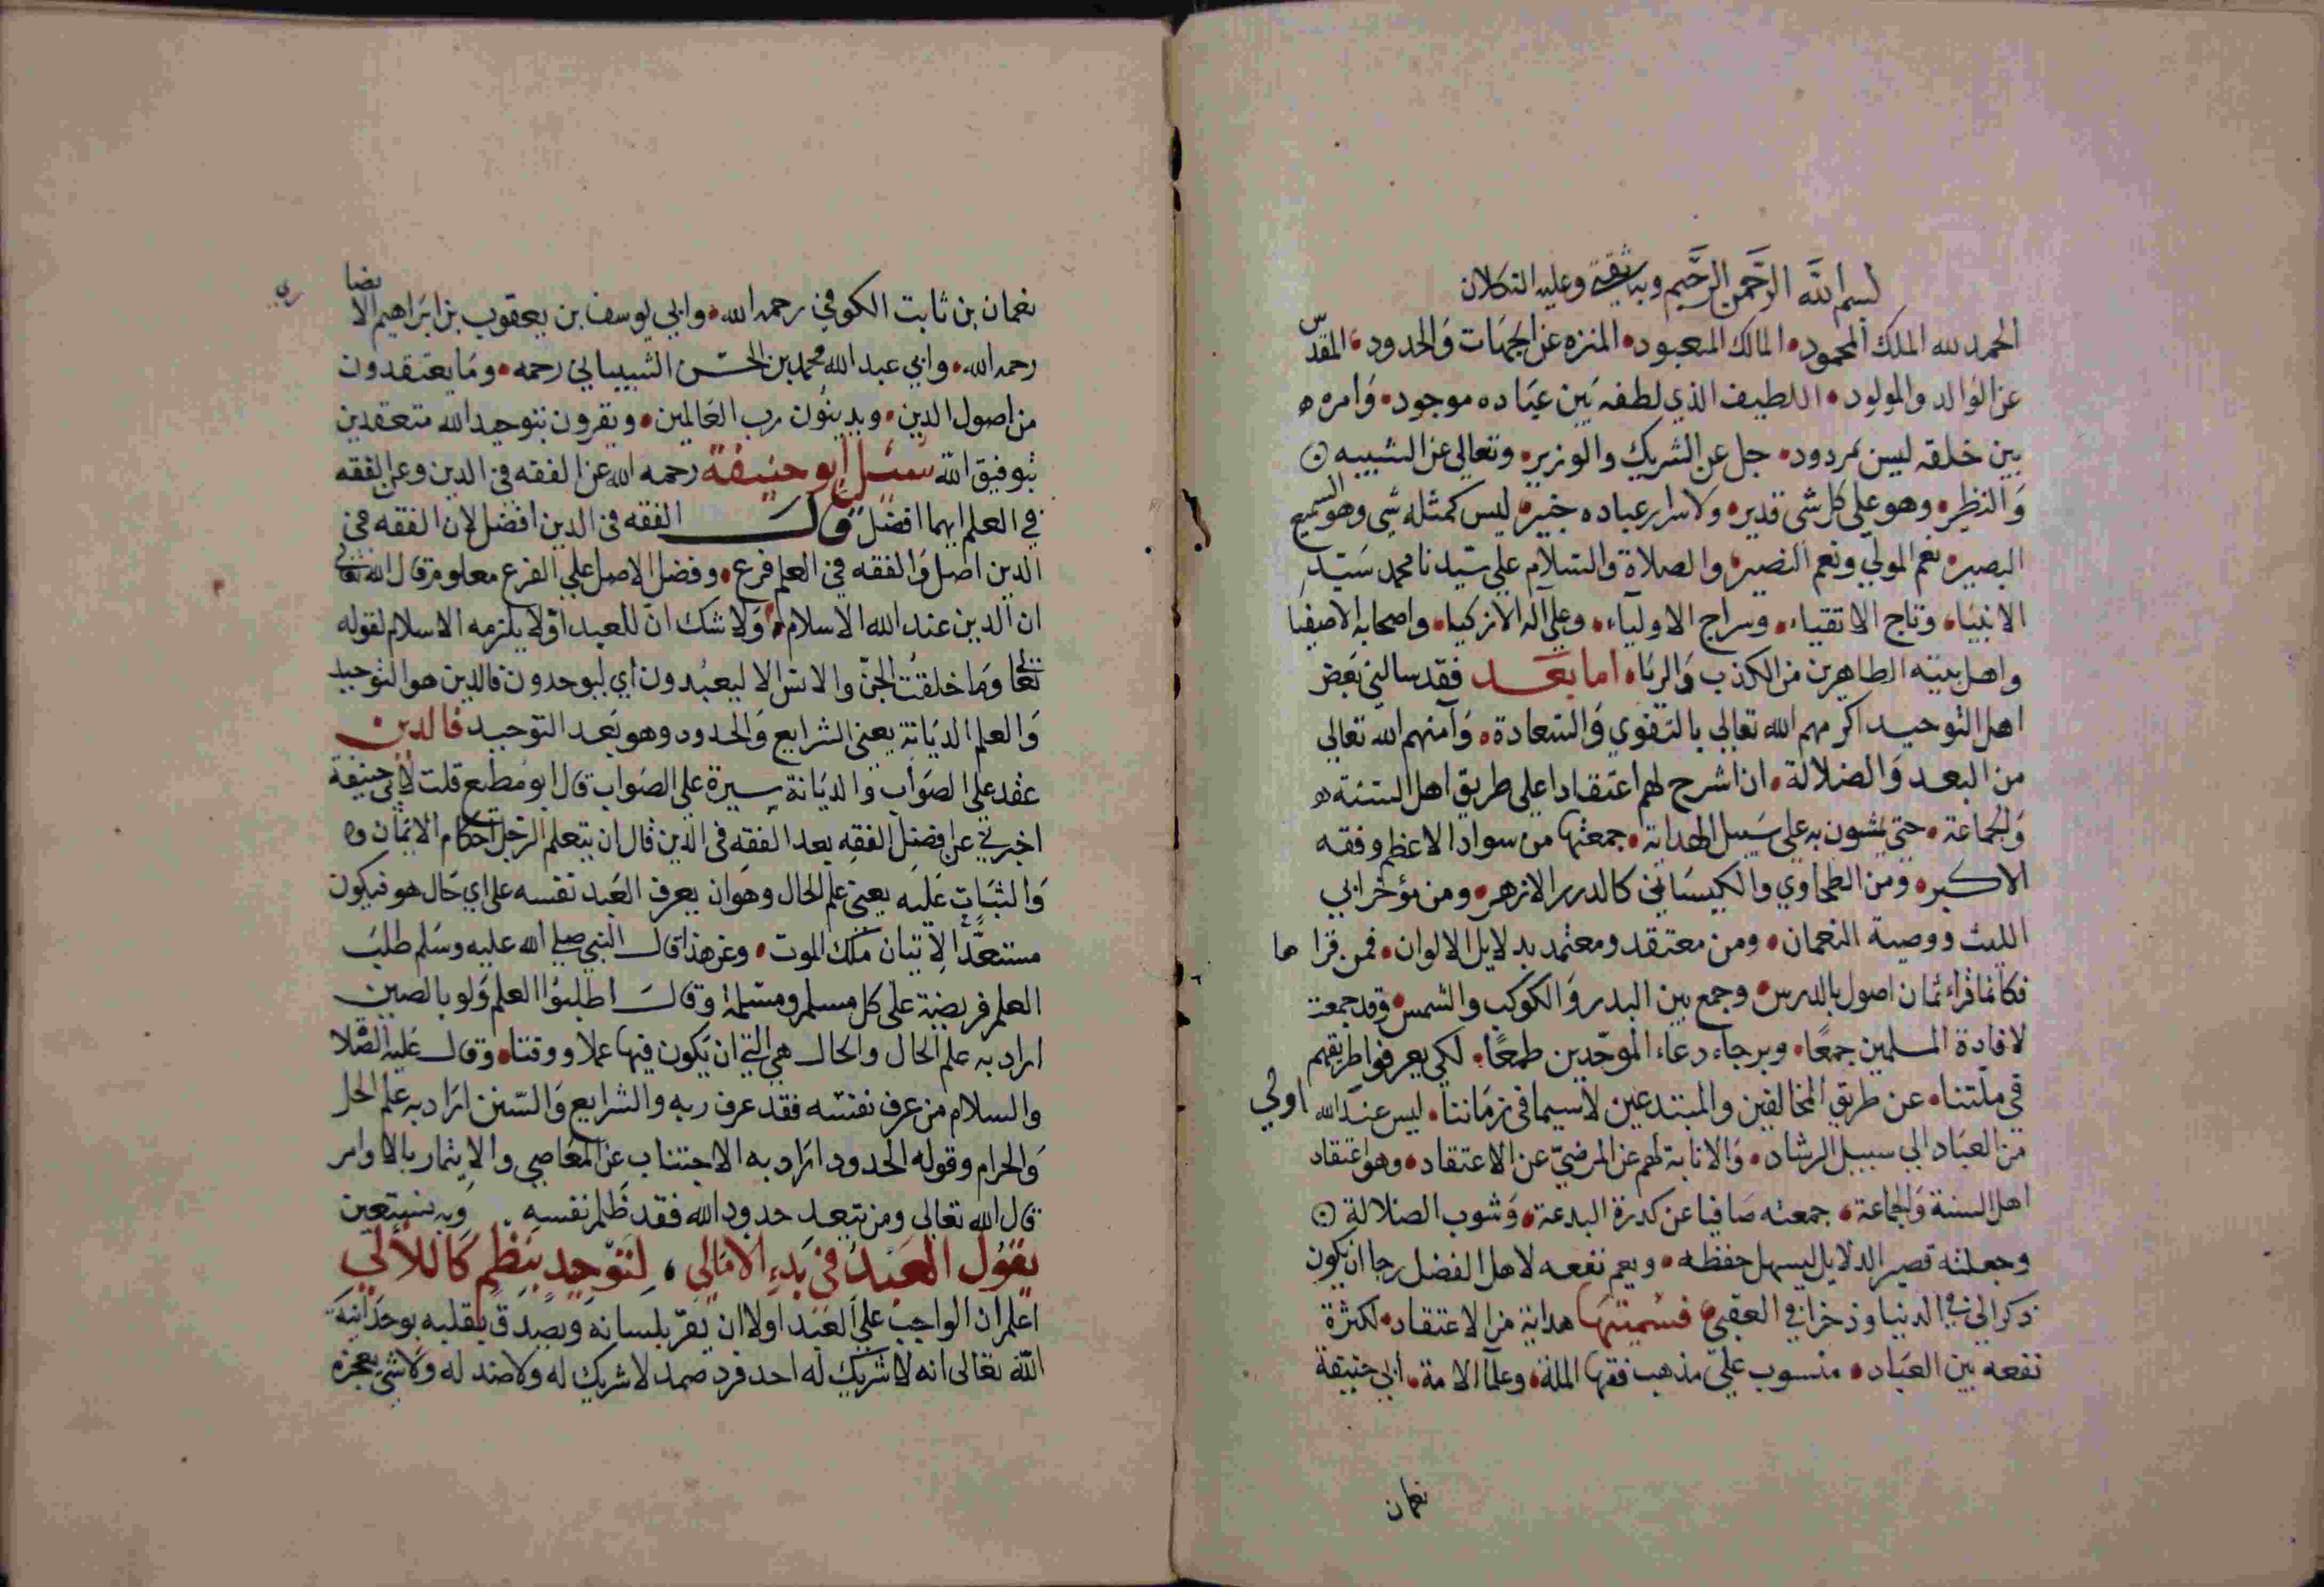 بسم الله الرحمن الرحيم وبه ثقتي وعليه التكلان
الحمد لله الملك المحمود • المالك المعبود • المنزه عن الجهات والحدود • المقدس
عن الوالد والمولود • اللطيف الذي لطفه بين عباده موجود • وامره
بين خلقه ليس بمردود • جل عن الشريك والوزير • وتعالى عن الشبيه
والنظير • وهو على كل شي قدير • ولاسرار عباده خبير • ليس كمثله شي وهو السميع
البصير • نعم المولي ونعم النصير • والصلاة والسلام علي سيدنا محمد سيد
الانبياء • وتاج الاتقياء • وسراج الاولياء • وعلي اله الازكيا • واصحابه الاصفيا
واهل بيته الطاهرين من الكذب والرياء اما بعد فقد سالني بعض
اهل التوحيد اكرمهم الله تعالي بالتقوي والسعادة • وآمنهم الله تعالي
من البعد والضلالة • ان اشرح لهم اعتقادا علي طريق اهل السنة
والجماعة • حتي يمشون به علي سبيل الهداية • جمعتها من سواد الاعظم وفقه
الاكبر • ومن الطحاوي والكيساني كالدرر الازهر • ومن مؤخر ابي
الليث ووصية النعمان • ومن معتقد ومعتمد بدلايل الالوان • فمن قراها
فكانما قراء ثمان اصول بالدرس • وجمع بين البدر والكوكب والشمس • وقد جمعت
لافادة المسلمين جمعًا • وبرجاء دعاء الموحدين طمعًا • لكي يعرفوا طريقهم
في ملتنا • عن طريق المخالفين والمبتدعين لاسيما في زماننا • ليس عند الله اولي
من العباد الي سبيل الرشاد • والانابة لهم عن المرضي عن الاعتقاد • وهو اعتقاد
اهل السنة والجماعة • جمعته صافيا عن كدرة البدعة • وشوب الضلالة
وجعلته قصير الدلايل ليسهل حفظه • ويعم نفعه لاهل الفضل رجا ان يكون
ذكرا لي في الدنيا وذخرا في العقبي • فسميتها هداية من الاعتقاد • لكثرة
نفعه بين العباد • منسوب علي مذهب فقها الملة • وعلما الامة • ابي حنيفة
نعمان
نعمان بن ثابت الكوفي رحمه الله • وابي يوسف بن يعقوب بن ابراهيم الانصاري
رحمه الله • وابي عبد الله محمد بن الحسن الشيباني رحمه • وما يعتقدون
من اصول الدين • ويدينون رب العالمين • ويقرون بتوحيد الله متعقدين
بتوفيق الله سئل ابو حنيفة رحمه الله عن الفقه في الدين وعن الفقه
في العلم ايهما افضل قال الفقه في الدين افضل لان الفقه في
الدين اصل والفقه في العلم فرع • وفضل الاصل علي الفرع معلوم قال الله تعالي
ان الدين عند الله الاسلام • ولا شك ان للعبد اولا يلزمه الاسلام لقوله
تعالى وما خلقت الجن والانس الا ليعبدون اي ليوحدون فالدين هو التوحيد
والعلم الديانة يعني الشرايع والحدود وهو بعد التوحيد فالدين
عقد علي الصواب والديانة سيرة علي الصواب قال ابو مطيع قلت لابي حنيفة
اخبرني عن افضل الفقه بعد الفقه في الدين قال ان يتعلم الرجل احكام الايمان
والثبات عليه يعني علم الحال وهو ان يعرف العبد نفسه علي اي حال هو فيكون
مستعدًا لاتيان ملك الموت • وعن هذا قال النبي صلي الله عليه وسلم طلب
العلم فريضة علي كل مسلم ومسلمة وقال اطلبوا العلم ولو بالصين
اراد به علم الحال والحال هي التي ان يكون فيها عملا ووقتا • وقال عليه الصلا
والسلام من عرف نفسه فقد عرف ربه والشرايع والسنن اراد به علم الحل
والحرام وقوله الحدود اراد به الاجتناب عن المعاصي والايتمار بالاوامر
قال الله تعالي ومن يتعد حدود الله فقد ظلم نفسه وبه نستعين
يقول العبد في بدء الامالي ، لتوحيد بنظم كاللألي
اعلم ان الواجب علي العبد اولا ان يقر بلسانه ويصدق بقلبه بوحدانية
الله تعالى انه لا شريك له احد فرد صمد لا شريك له ولا ضد له ولا شي يعجزه